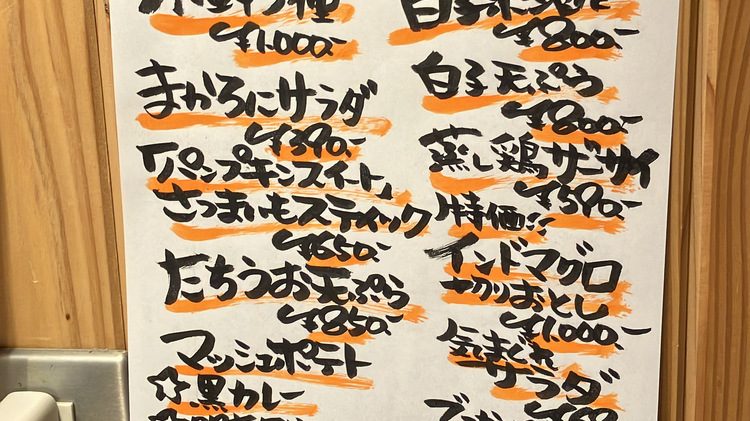 ¥1,000.-
まかろにサラダ
¥390.-
「パンプキンスイート」
さつまいもスティック
¥650.-
たちうお天ぷら
¥850.-
マッシュポテト
☆黒カレー
¥800.-
白子天ぷら
¥800.-
蒸し鶏ザーサイ
¥590.-
特価!!
インドマグロ
切りおとし
¥1,000.-
気まぐれ
サラダ